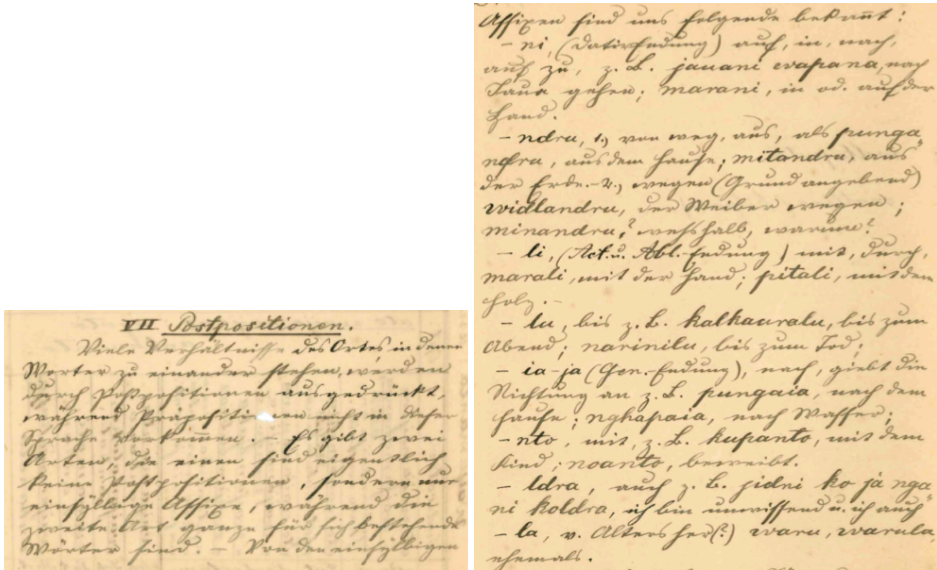 VII Postpositionen.
Viele Verhältnisse des Ortes, in denen
Wörter zu einander stehen, werden
durch Postpositionen ausgedrückt,
während Präpositionen nicht in dieser
Sprache vorkommen. – Es gibt zwei
Arten, die einen sind eigentlich
keine Postpositionen, sondern nur
einsyllbige Affixe, während die
zweite Art ganze für sich bestehende
Wörter sind. – Von den einsylbigen
Affixen sind uns folgende bekannt:
– ni, (Dativ-Endung) auf, in, nach,
auf zu, z. B. jauani wapana, nach
Jaua gehen; marani, in od. auf der
Hand.
– ndru, 1., von weg, aus, als punga
ndru, aus dem Hause; mitandru, aus
der Erde. – 2., wegen (Grund angebend)
widlandru, der Weiber wegen;
minandru? weßhalb, warum?
– li, (Act. u. Abl.-Endung) mit, durch,
marali, mit der Hand; pitali, mit dem
Holz. –
– lu, bis z. B. kalkauralu, bis zum
Abend; narinilu, bis zum Tod;
– ia-ja (Gen.-Endung), nach, giebt die
Richtung an z. B. pungaia, nach dem
Hause; nghapaia, nach Wasser;
– nto, mit, z. B. kupanto, mit dem
Kind; noanto, beweibt.
– ldra, auch z. B. jidni ko ja nga
ni koldra, ich bin unwissend u. ich auch
– la, v. Alters her(?) waru, warula,
ehemals.